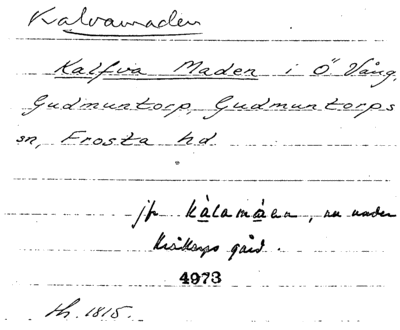 Kalvamaden
Kalfva Maden i Ö. Vång,
Gudmuntorp, Gudmuntorps
sn, Frosta hd.
jfr kàlamàen, nu under
gård.
4973
1815.